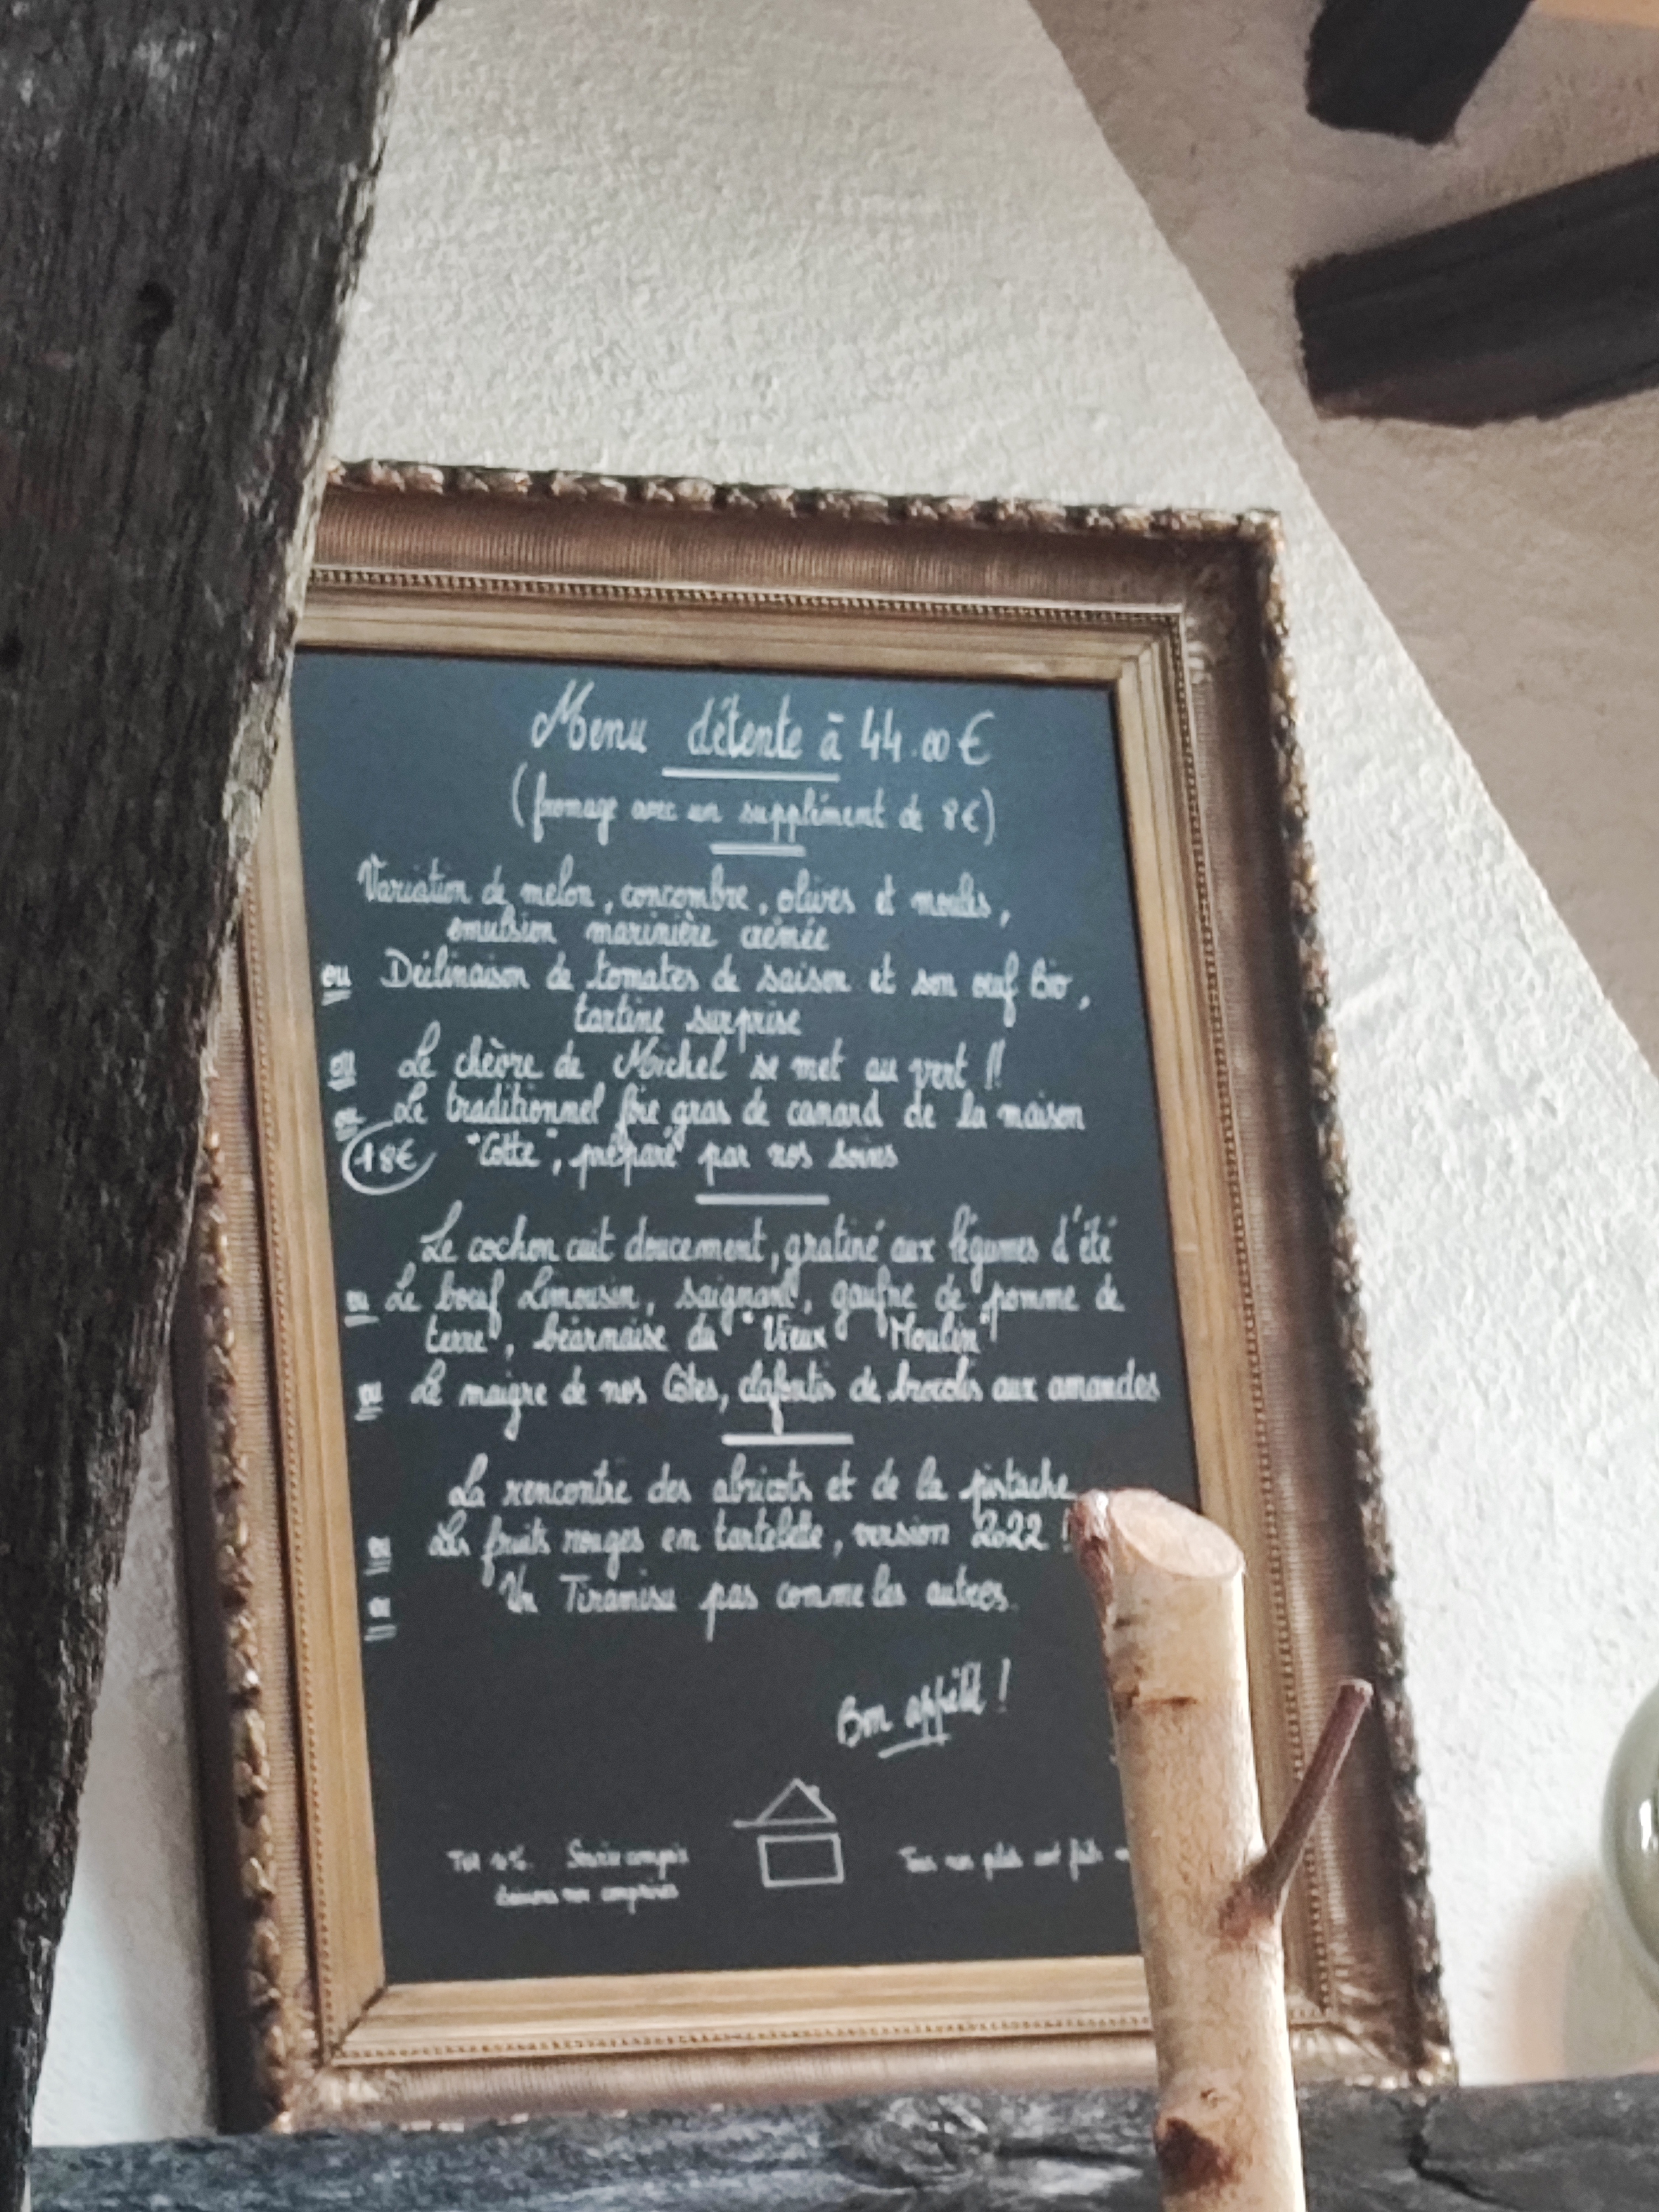 Menu détente à 44.00 €
(fromage avec un supplément de 8€)
Variation de melon, concombre, olives et moules,
émulsion marinière crémée
ou Déclinaison de tomates de saison et son œuf bio,
tartine surprise
ou Le chèvre de Michel se met au vert !!
ou Le traditionnel foie gras de canard de la maison
18€ "Cotte", préparé par nos soins
Le cochon cuit doucement, gratiné aux légumes d'été
ou Le bœuf Limousin, saignant, gaufre de pomme de
terre, béarnaise du "Vieux Moulin"!
ou Le maigre de nos Côtes, clafoutis de brocolis aux amandes
La rencontre des abricots et de la pistache
ou Les fruits rouges en tartelette, version 2022 !
ou Un Tiramisu pas comme les autres.
Bon appétit !
Service compris
Tous nos plats sont faits
boissons non comprises